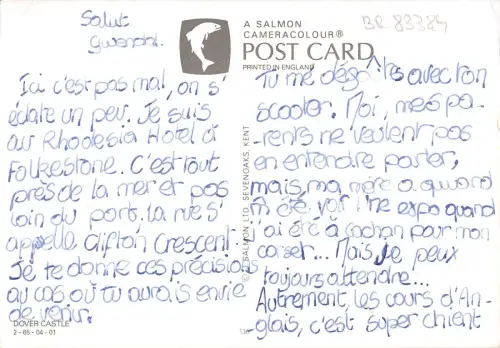 Salut
Gwenohl.
Ici c'est pas mal, on s'
éclate un peu. Je suis
au Rhodesia Hotel à
Folkestone. C'est tout
près de la mer et pas
loin du port. La rue s'
appelle Clifton Crescent.
Je te donne ces précisions
au cas où tu aurais envie
de venir.
DOVER CASTLE
2-65-04-01
A SALMON
CAMERACOLOUR®
POST CARD
PRINTED IN ENGLAND
BR 83384
© J. SALMON LTD., SEVENOAKS, KENT
Tu me dégoûtes avec ton
scooter. Moi, mes pa-
rents ne veulent pas
en entendre parler,
mais, ma mère a quand
m̂ été voir une expo quand
j'ai été à Cachan pour mon
corset... Mais je peux
toujours attendre...
Autrement, les cours d'An-
glais, c'est super chient